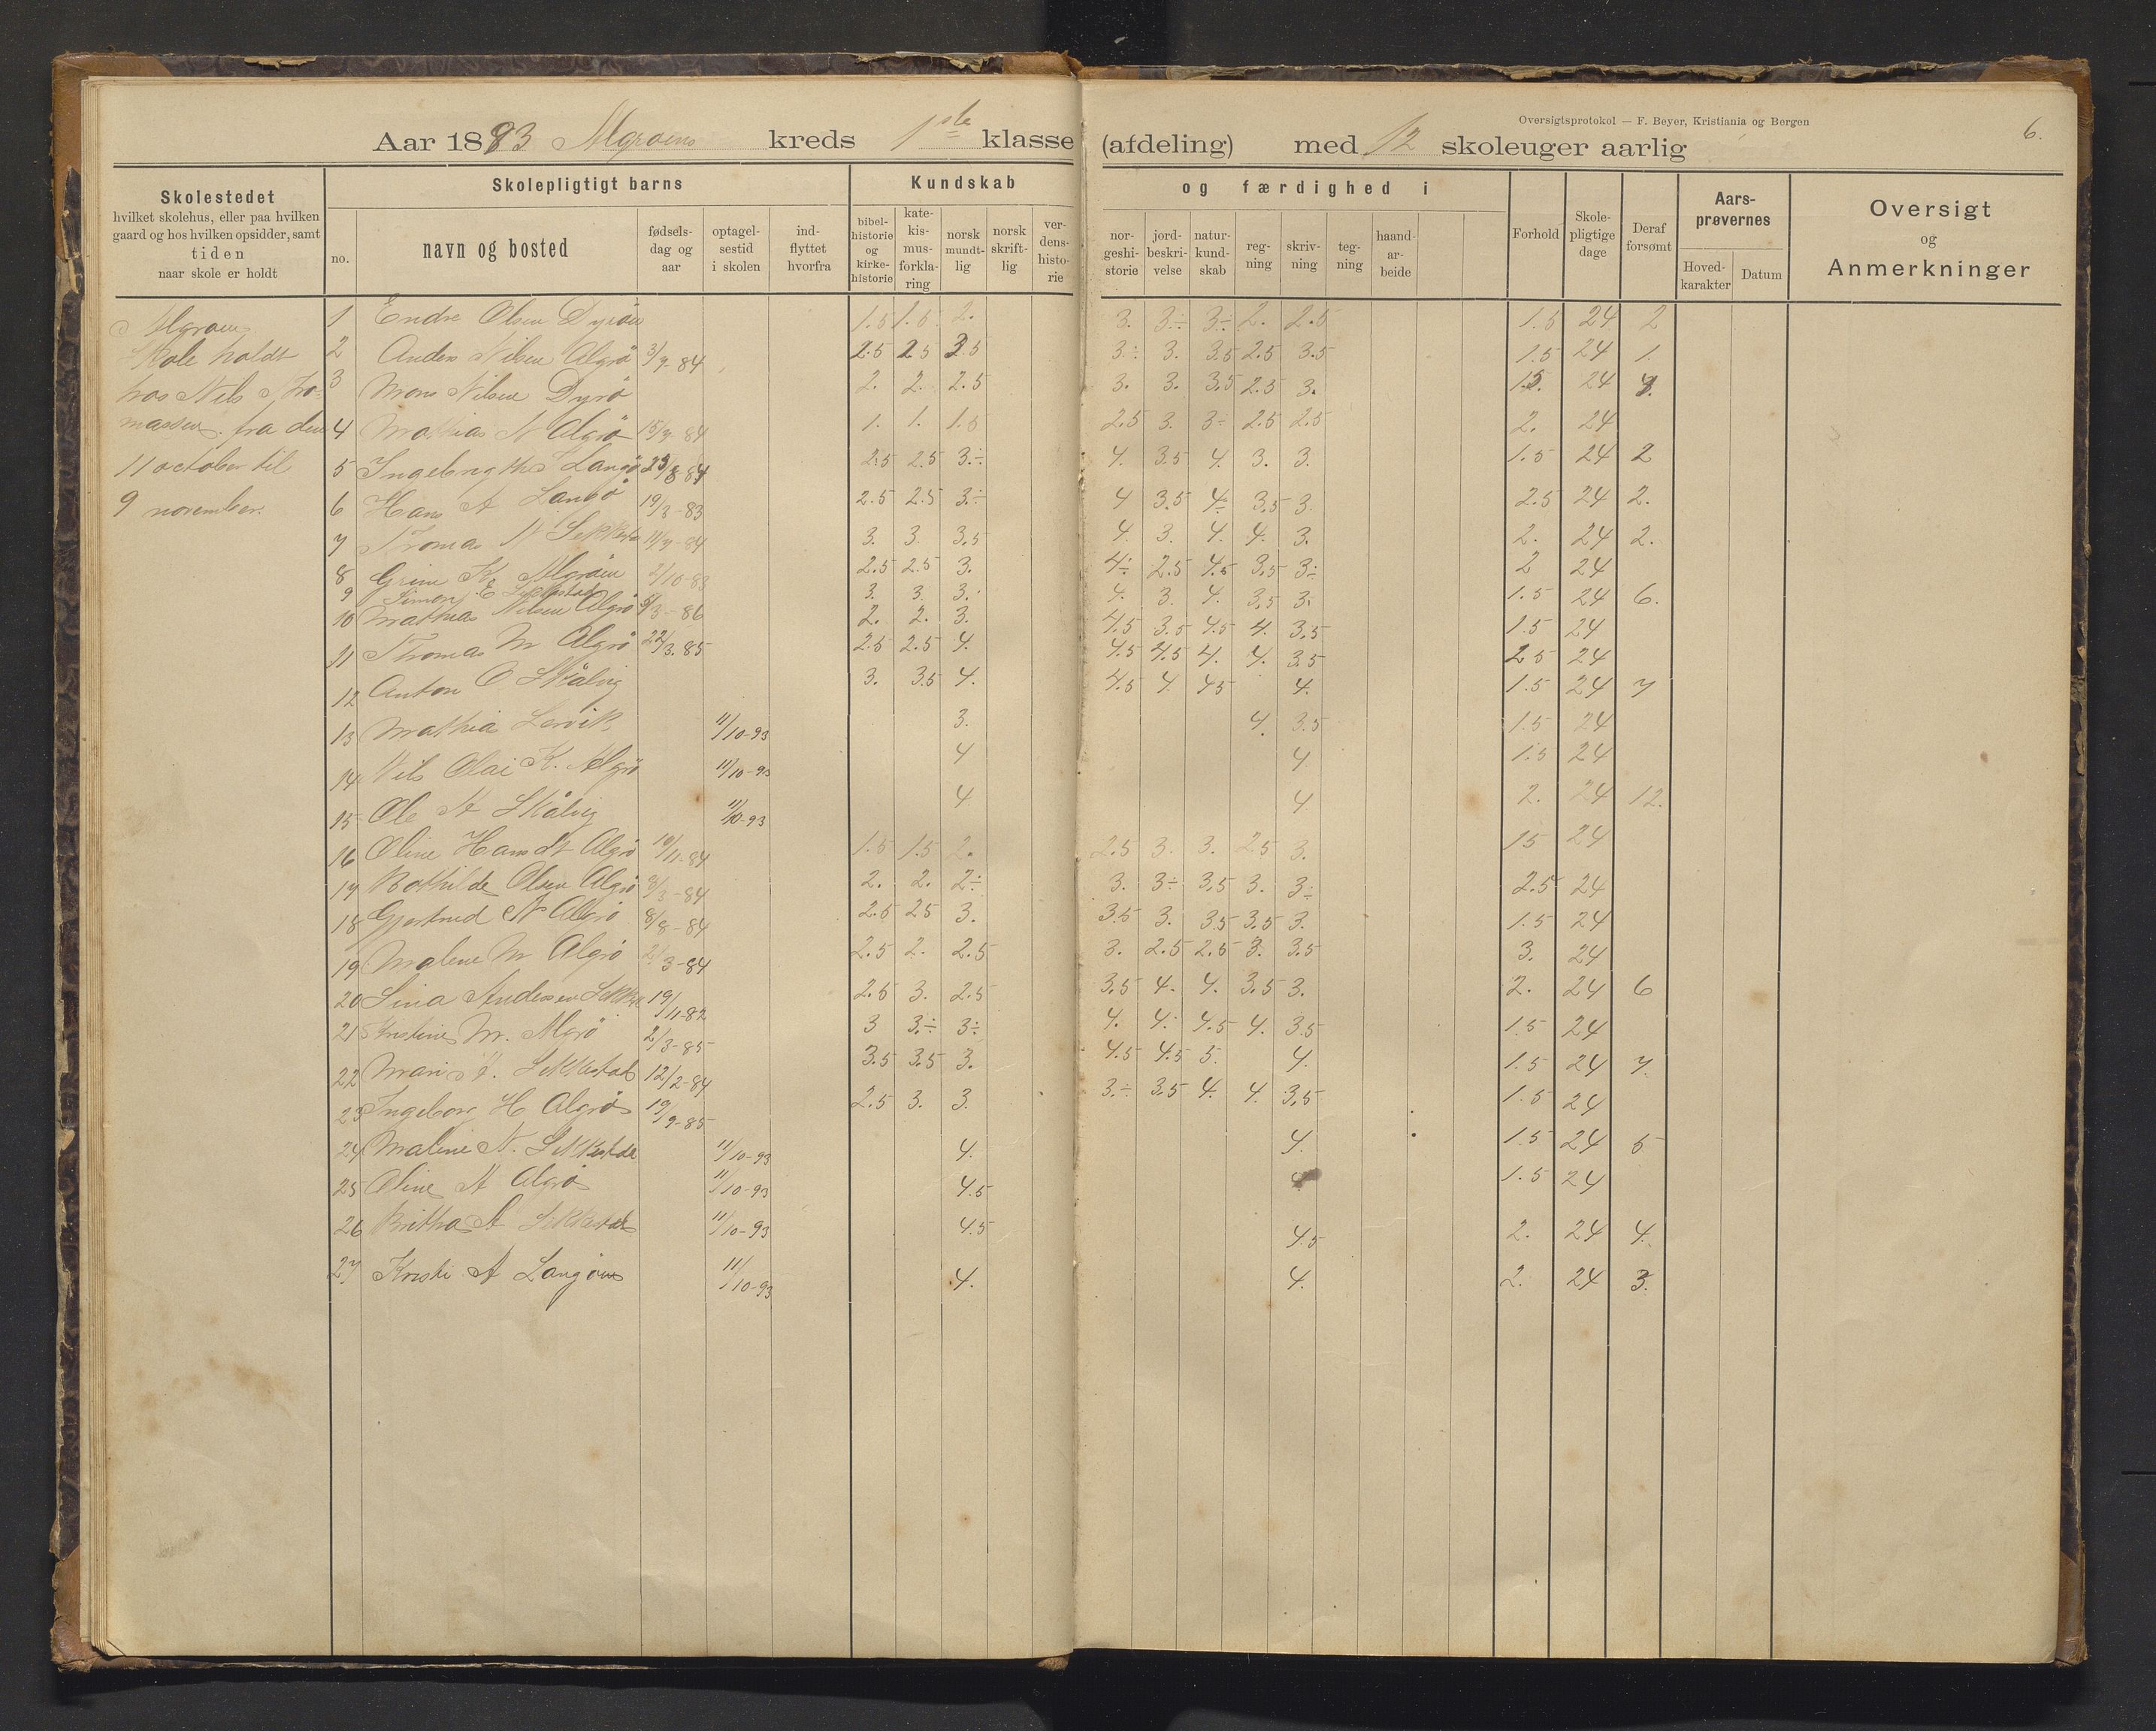 Oversigtsprotokol — F. Beyer, Kristiania og Bergen
6.
Aar 1893 Algrøens kreds 1ste klasse (afdeling) med 12 skoleuger aarlig
Skolestedet
hvilket skolehus, eller paa hvilken
gaard og hos hvilken opsidder, samt
tiden
naar skole er holdt
Skolepligtigt barns
no.
navn og bosted
fødsels-
dag og
aar
optagel-
sestid
i skolen
ind-
flyttet
hvorfra
Kundskab og færdighed i
bibel-
historie
og
kirke-
historie
kate-
kis-
mus-
forkla-
ring
norsk
mundt-
lig
norsk
skrift-
lig
ver-
dens-
histo-
rie
nor-
geshi-
storie
jord-
beskri-
velse
natur-
kund-
skab
reg-
ning
skriv-
ning
teg-
ning
haand-
ar-
beide
Forhold
Skole-
pligtige
dage
Deraf
forsømt
Aars-
prøvernes
Hoved-
karakter
Datum
Oversigt
og
Anmerkninger
Algrøens
Skole holdt
hos Nils Tho-
massen fra den
11 october til
9 november.
1 Endre Olsen Dyrøen 1.5 1.5 2. 3. 3÷ 3÷ 2. 2.5 1.5 24 2
2 Anders Nilsen Algrø 3/7-84 2.5 2.5 3.5 3÷ 3. 3.5 2.5 3.5 1.5 24 1.
3 Mons Nilsen Dyrø 2. 2. 2.5 3. 3. 3.5 2.5 3. 1.5. 24
4 Mathias N Algrø 15/7-84 1. 1. 1.5 2.5 3. 3÷ 2.5 2.5 2. 24
5 Langø 2.5 2.5 3.÷ 4. 3.5 4. 3. 3. 1.5 24 2
6 Hans A Langø 19/3-83 2.5 2.5 3.÷ 4 3.5 4÷ 3.5 3. 2.5 24 2.
7 Thomas N 11/7-84 3. 3. 3.5 4. 3. 4. 4. 3. 2. 24 2.
8 Grim K. Algrøen 2/10-83 2.5 2.5 3. 4÷ 2.5 4.5 3.5 3÷ 2 24
9 Simon 3. 3. 3. 4. 3. 4. 3.5 3. 1.5 24 6.
10 Mathias Nilsen Algrø 5/3-86 2. 2. 3. 4.5 3.5 4.5 4. 3.5 1.5 24
11 Thomas M Algrø 22/3.85 2.5 2.5 4. 4.5 4.5 4. 4. 3.5 2 5 24
12 Anton O Skålvig 3. 3.5 4. 4.5 4. 4.5 4. 1.5 24 7
13 Mathias Lervik 11/10-93 3. 4. 3.5 1.5 24
14 Nils Olai K. Algrø 11/10-93 4 4 1.5 24
15 Ole A Skålvig 11/10-93 4. 4 2. 24 12.
16 Oline Hansdt Algrø 19/11-84 1.5 1.5 2. 2.5 3. 3. 2.5 3. 15 24
17 Bothilde Olsen Algrø 8/3-84 2. 2. 2÷ 3. 3÷ 3.5 3. 3÷ 2.5 24
18 Gjertrud N Algrø 8/8-84 2.5 25 3. 3.5 3. 3.5 3.5 3. 1.5 24
19 Malene M Algrø 2/3-84 2.5 2. 2.5 3. 2.5 2.5 3. 3.5 3. 24
20 Lina Andersen 19/11-82 2.5 3. 2.5 3.5 4. 4. 3.5 3. 2. 24 6
21 Kristine M. Algrø 2/3-85 3 3.÷ 3÷ 4. 4. 4.5 4. 3.5 1.5 24
22 Mari 12/2-84 3.5 3.5 3. 4.5 4.5 5. 4. 1.5 24 7.
23 Ingeborg H Algrø 19/9-85 2.5 3. 3. 3.÷ 3.5 4. 4. 3.5 1.5 24
24 Maline N. 11/10-93 4. 4. 1.5 24 5
25 Oline A Algrø 11/10-93 4.5 1.5 24
26 Britha A 11/10-93 4.5 4.5 2. 24 4.
27 Kristi A Langøen 11/10-93 4. 4. 2. 24 3.